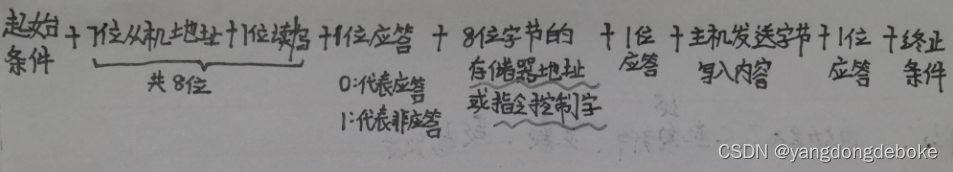 起始条件 + 7位从机地址 + 1位读写 + 1位应答 + 8位字节的存储器地址或指令控制字 + 1位应答 + 主机发送字节写入内容 + 1位应答 + 终止条件
共8位
0:代表应答
1:代表非应答
CSDN @yangdongdeboke